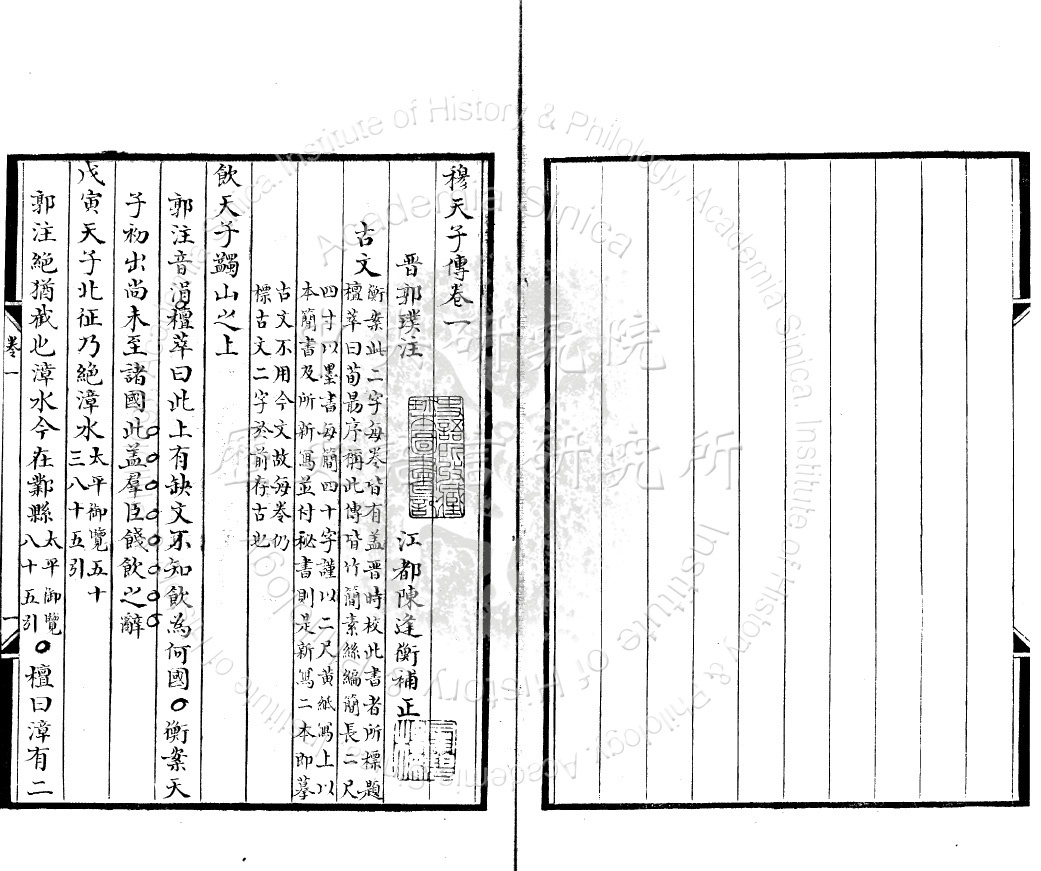 穆天子傳卷一
晋郭璞注
江都陳逢衡補正
古文
衡案此二字每卷皆有盖晋時校此書者所標題
檀萃曰荀勗序稱此傳皆竹簡素絲編簡長二尺
四寸以墨書每簡四十字謹以二尺黄紙寫上以
本簡書及所新寫並付秘書則是新寫二本即摹
古文不用今文故每卷仍
標古文二字於前存古也
飲天子蠲山之上
郭注音涓檀萃曰此上有缺文不知飲為何國○衡案天
子初出尚未至諸國此盖羣臣餞飲之辭
戊寅天子北征乃絶漳水
太平御覽五十
三八十五引
郭注絶猶截也漳水今在鄴縣
太平御覽
八十五引
○檀曰漳有二
卷一
一
史語所收藏
珍本圖書記
歷史語言研究所
研究院
Academia Sinica
Institute of History & Philology, Academia Sinica